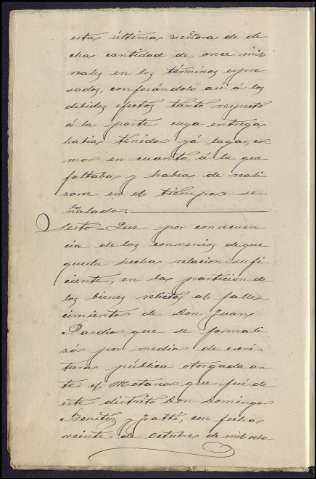 esta última señora de di-
cha cantidad de once mil
reales en los términos expre-
sados, confesándolo así á los
debidos efectos tanto respecto
á la parte cuya entrega
había tenido yá lugar, co-
mo en cuanto á la que
faltaba y había de reali-
zarse en el tiempo se-
ñalado.
Sesto. Que por consecuen-
cia de los convenios de que
queda hecha relacion sufi-
ciente, en la particion de
los bienes relictos al falle-
cimiento de Don Juan
Pardio que se formali-
zó por medio de escri-
tura pública otorgada an-
te el Notario que fué de
este distrito Don Domingo
Benitez y en fecha
veinte de Octubre de mil ocho